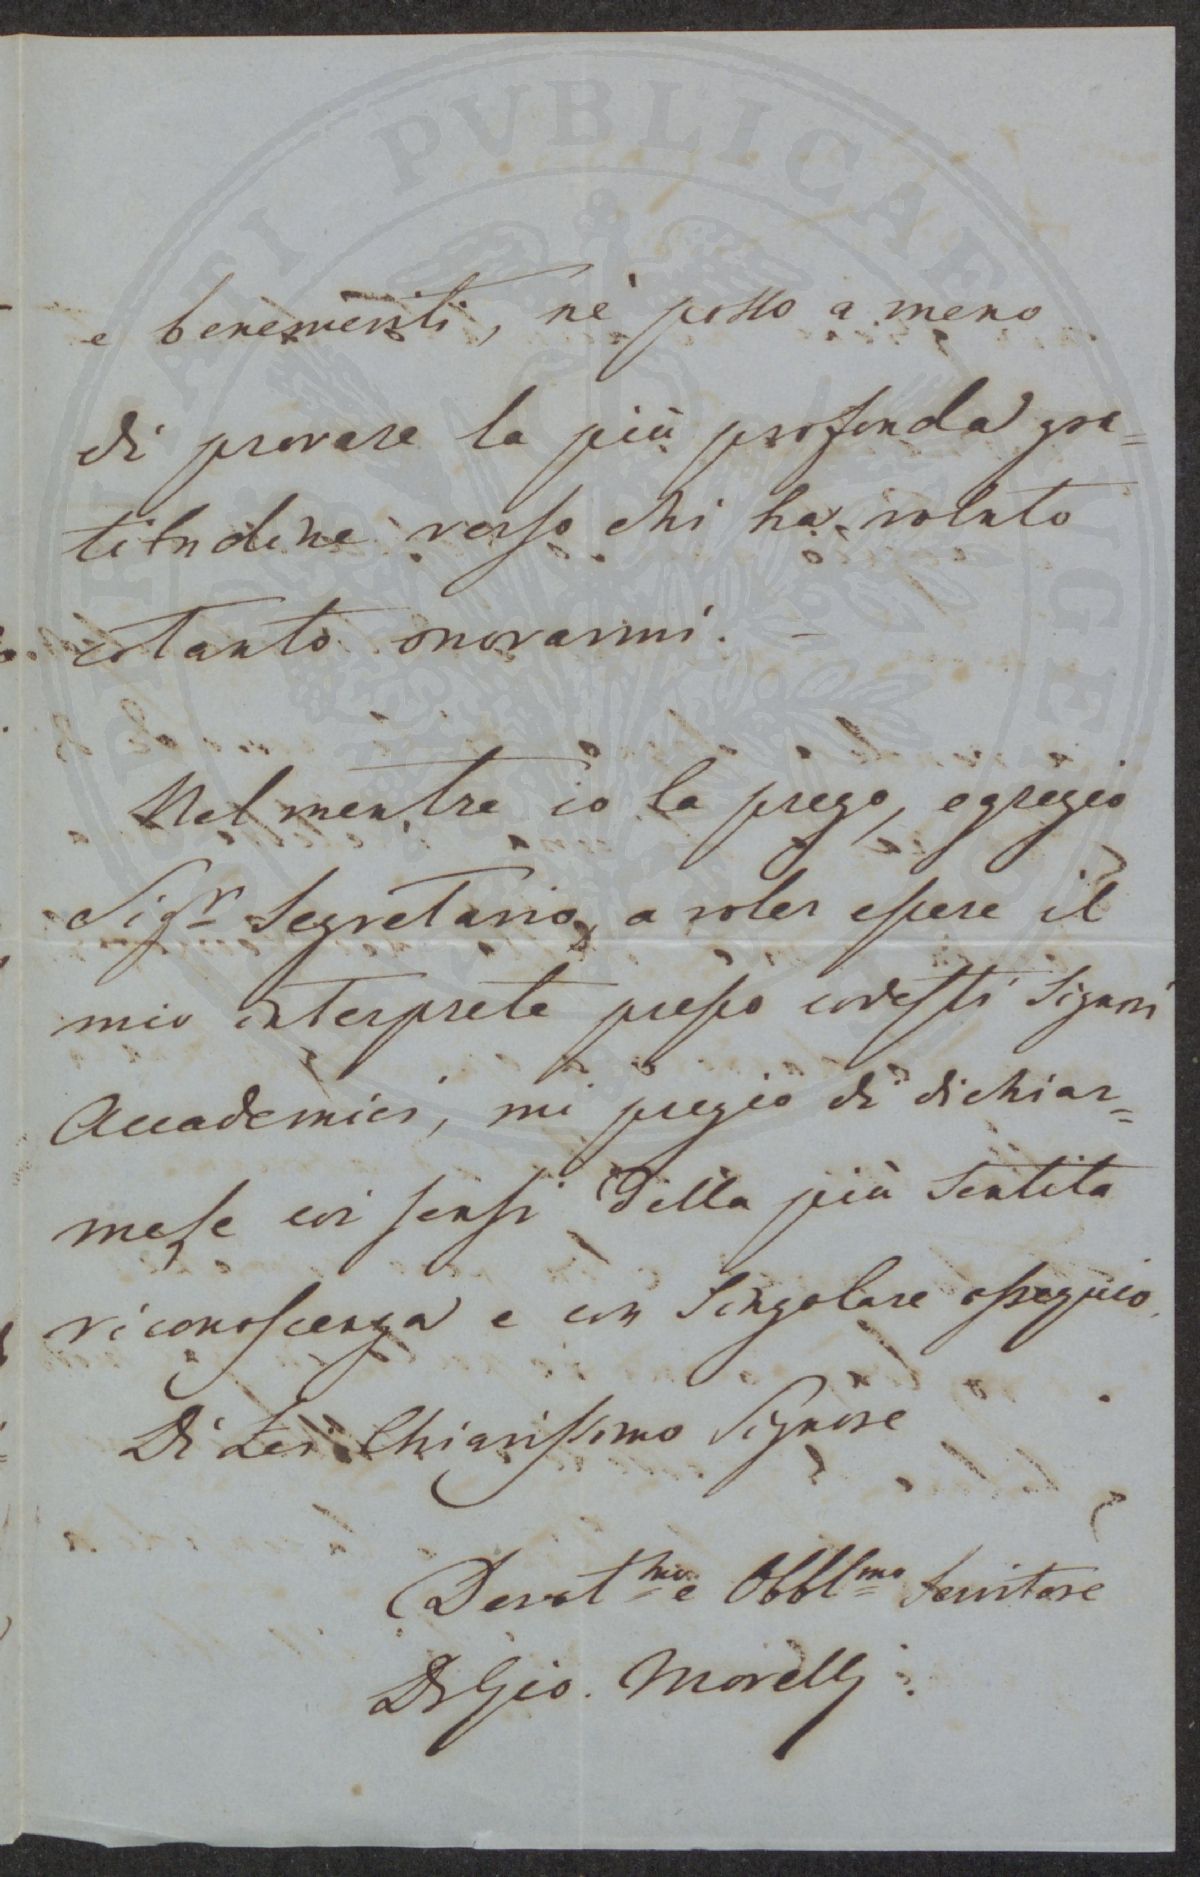 e benemeriti, nè posso a meno
di provare la più profonda gra=
titudine verso chi ha voluto
cotanto onorarmi. –
Nel mentre io la prego, egregio
Sigr Segretario, a voler essere il
mio interprete presso codesti Signori
Accademici, mi pregio di dichiar=
mele coi sensi della più sentita
riconoscenza e con singolare ossequio.
Di Lei Chiarissimo Signore
Devotmo e Obblmo Servitore
Dr Gio. Morelli.
PIETATSI PVBLICAE